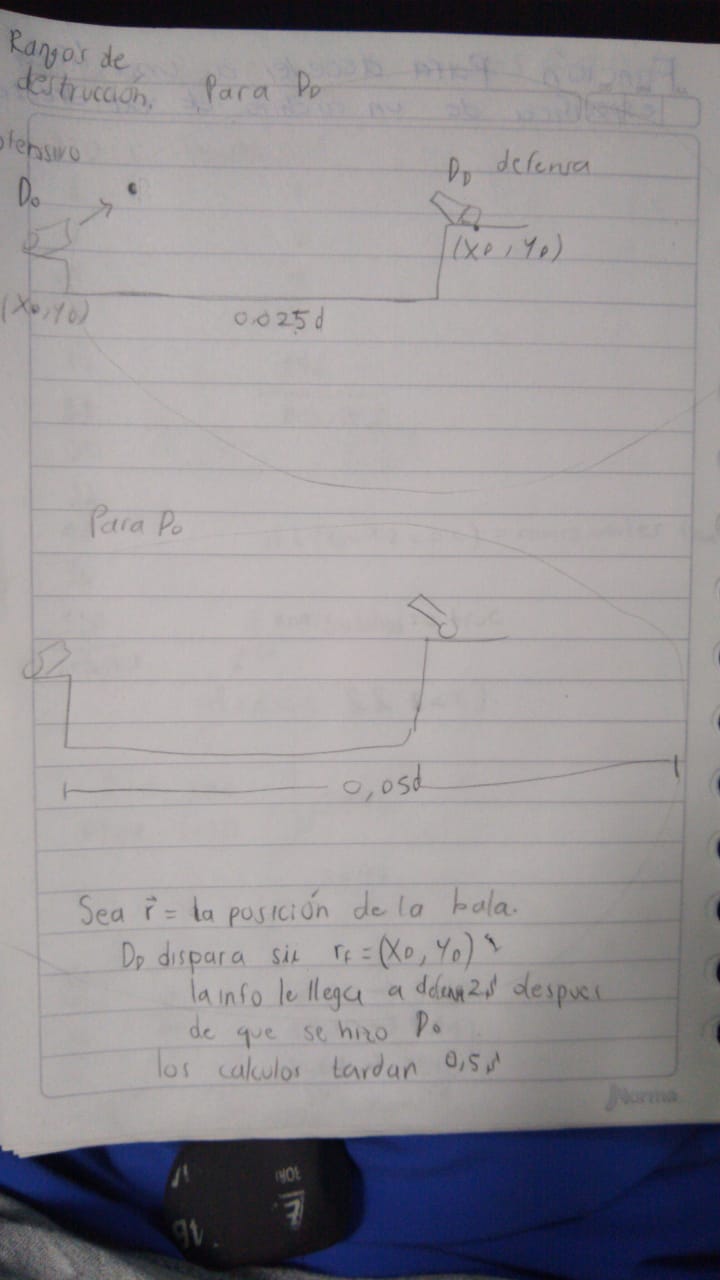 Rangos de
destrucción. Para DD
ofensivo
DO
DD defensa
(XD, YD)
(XO, YO)
0.025d
Para DO
0,05d
Sea r⃗ = la posición de la bala.
DD dispara si rf = (XD, YD)
la info le llega a 2s despues
de que se hizo DO
los calculos tardan 0,5s
Norma